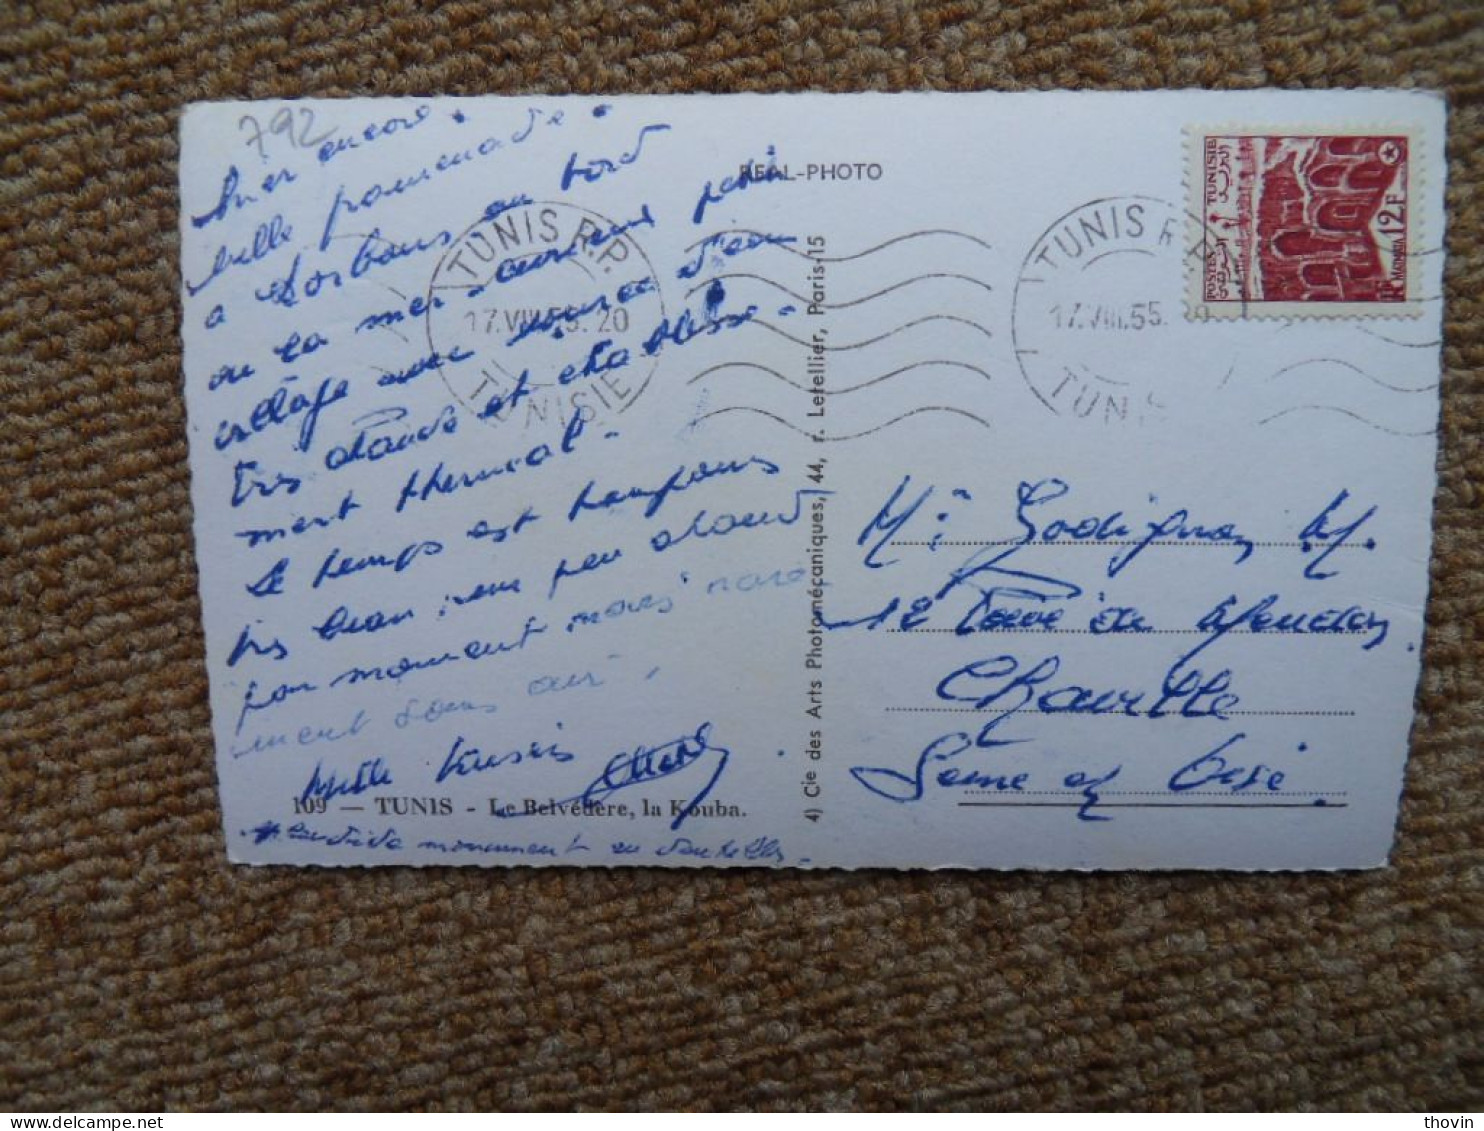 792
Hier encore
belle promenade -
a Korbous au bord
de la mer - curieux petit
village avec source d'eau
très chaude et établisse-
ment thermal -
Le temps est toujours
très beau, un peu chaud
par moment mais rare-
ment sans air,
Mille baisers
109 — TUNIS - Le Belvédère, la Kouba.
monument
REAL-PHOTO
TUNIS R.P.
17.VIII.55. 20
TUNISIE
4) Cie des Arts Photomécaniques, 44, r. Letellier, Paris-15
TUNIS R.P.
17.VIII.55.
TUNIS
POSTES TUNISIE
البريد التونسي
12F
Mr Godignon M.
12 Pavé de Meudon
Chaville
Seine et Oise.
thovin